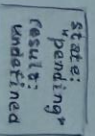 state:
"pending"
result:
undefined